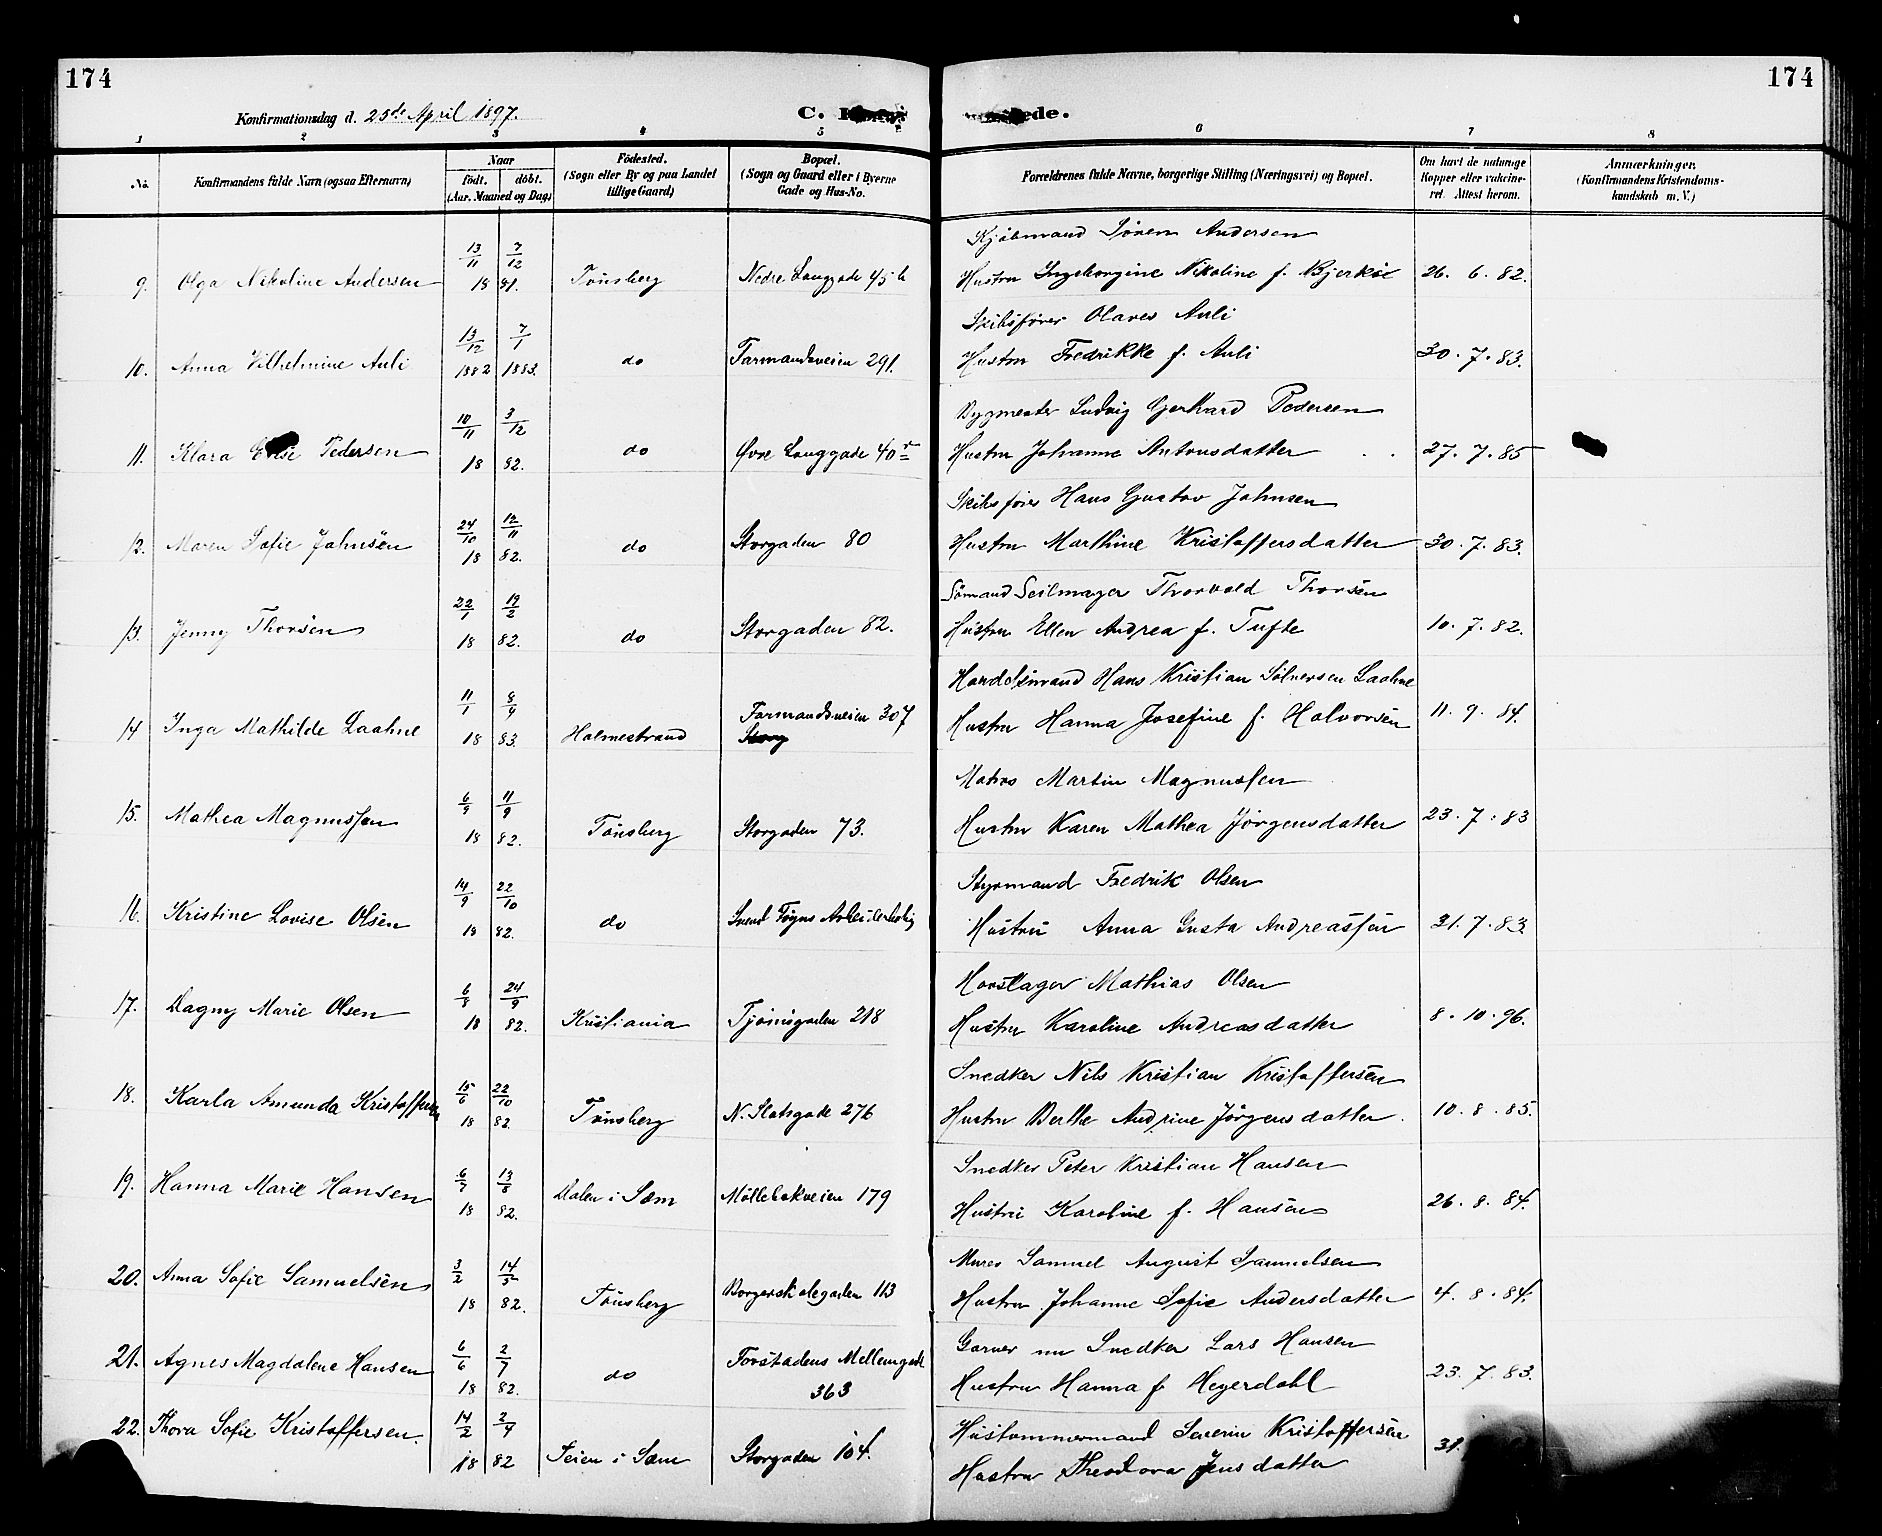 174
174
Konfirmationsdag d. 25de April 1897.
C.
ede.
1 2 3 4 5 6 7 8
No.
Konfirmandens fulde Navn (ogsaa Efternavn)
Naar
født. døbt.
(Aar, Maaned og Dag)
Fødested.
(Sogn eller By og paa Landet
tillige Gaard)
Bopæl.
(Sogn og Gaard eller i Byerne
Gade og Hus-No.
Forældrenes fulde Navne, borgerlige Stilling (Næringsvei) og Bopæl.
Om havt de naturlige
Kopper eller vakcine-
ret. Attest herom.
Anmærkninger.
(Konfirmandens Kristendoms-
kundskab m. V.)
Kjøbmand Sören Andersen
9. Olga Nikoline Andersen 13/11 7/12 18 81. Tönsberg Nedre Langgade 45 b Hustru Ingeborgine Nikoline f. Bjerköe 26. 6. 82.
Skibsfører Olaves Auli
10. Anna Vilhelmine Auli 13/12 1882 7/1 1883. do Farmandsveien 291. Hustru Fredrikke f. Auli 30. 7. 83.
Bygmester Ludvig Gerhard Pedersen
11. Klara Pedersen 10/11 3/12 18 82. do Øvre Langgade 40 Hustru Johanne Antonsdatter 27. 7. 85
Skibsfører Hans Gustav Johnsen
12. Maren Sofie Johnsen 24/10 12/11 18 82. do Storgaden 80 Hustru Marthine Kristoffersdatter 30. 7. 83.
Sömand Seilmager Thorvald Thorsen
13. Jenny Thorsen 22/1 19/2 18 82. do Storgaden 82. Hustru Ellen Andrea f. Tufte 10. 7. 82.
Handelsmand Hans Kristian Sölversen Laahne
14 Inga Mathilde Laahne 11/1 8/4 18 83. Holmestrand Farmandsveien 307 Hustru Hanna Josefine f. Halvorsen 11. 9. 84.
Storg
Matros Martin Magnussen
15. Mathea Magnussen 6/9 11/9 18 82. Tönsberg Storgaden 73. Hustru Karen Mathea Jörgensdatter 23. 7. 83
Styrmand Fredrik Olsen
16. Kristine Lovise Olsen 14/9 22/10 18 82. do Svend Foyns Arbeiderbolig Hustru Anna Gusta Andreassen 31. 7. 83.
Hovslager Mathias Olsen
17. Dagny Marie Olsen 6/8 24/9 18 82. Kristiania Tjömisgaden 218 Hustru Karoline Andreasdatter 8. 10. 96.
Snedker Nils Kristian Kristoffersen
18. Karla Amunda Kristoffersen 15/6 22/10 18 82. Tönsberg N. Slotsgade 276 Hustru Berthe Andrine Jörgensdatter. 10. 8. 85.
Snedker Peter Kristian Hansen
19. Hanna Marie Hansen 6/7 13/8 18 82. Dalen i Sæm Möllebakveien 179 Hustru Karoline f. Hansen 26. 8. 84.
Murer Samuel August Samuelsen
20. Anna Sofie Samuelsen 3/2 14/5 18 82. Tönsberg Borgerskolegaden 113 Hustru Johanne Sofie Andersdatter 4. 8. 84.
Garver nu Snedker Lars Hansen
21. Agnes Magdalene Hansen 6/6 2/7 18 82. do Forstadens Mellemgade 363 Hustru Hanna f. Heyerdahl 23. 7. 83.
Hustømmermand Severin Kristoffersen
22. Thora Sofie Kristoffersen. 14/2 2/4 18 82 Seien i Sæm Storgaden 104. Hustru Theodora Jensdatter 31.